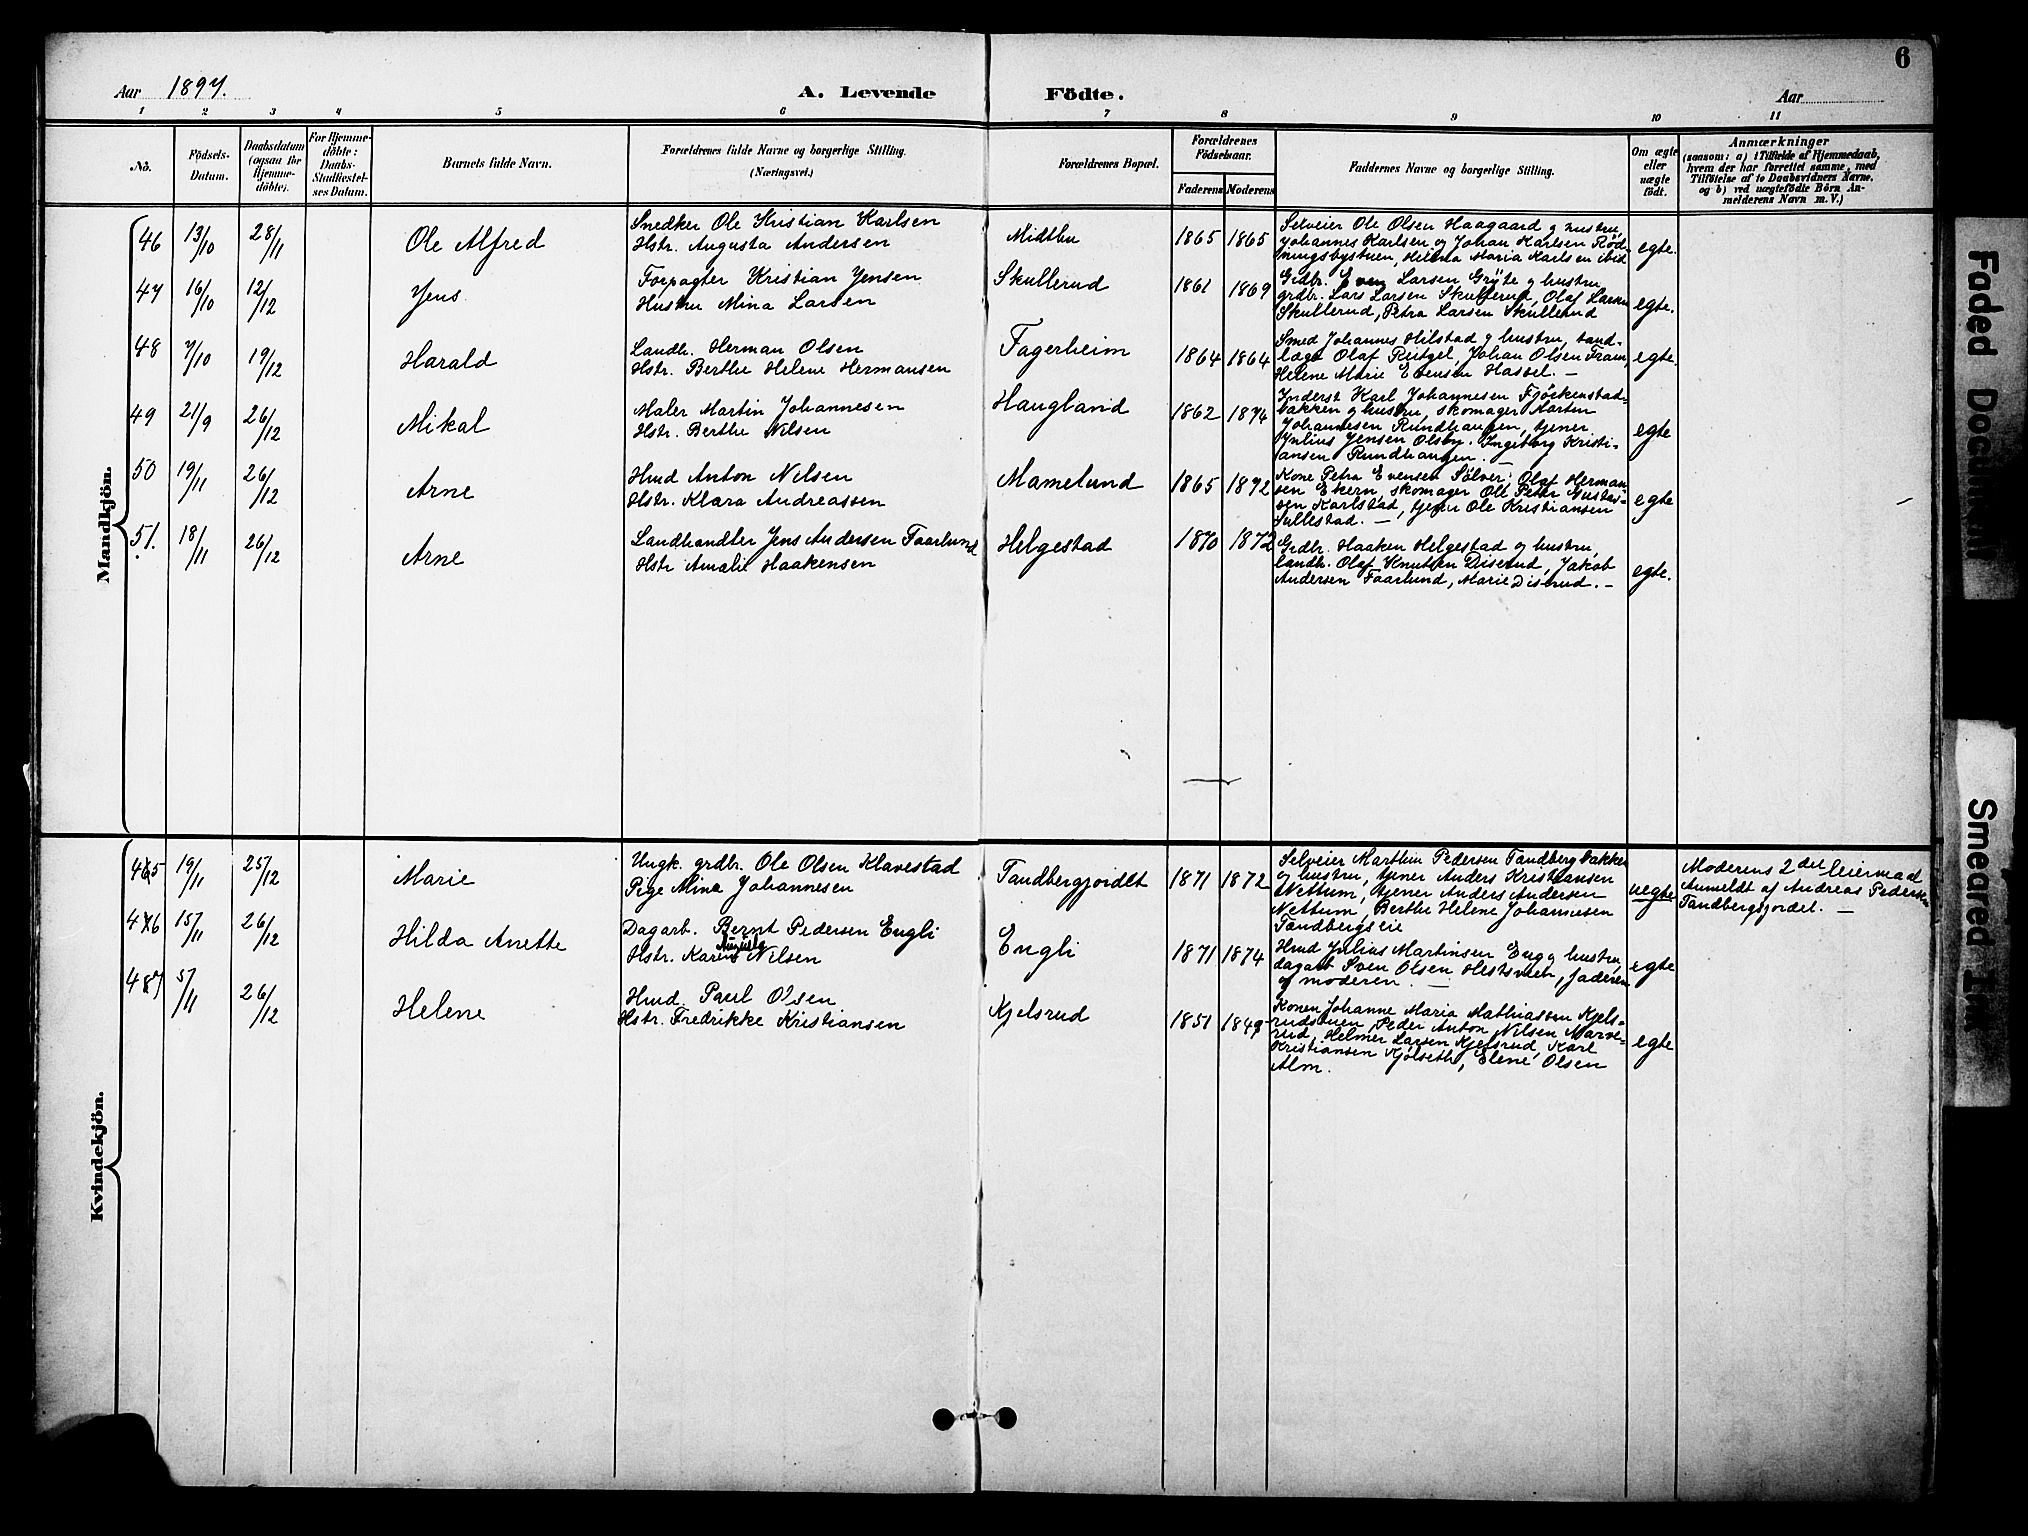 6
Aar 1897.
A. Levende Födte.
Aar
1 2 3 4 5 6 7 8 9 10 11
No.
Födsels-
Datum.
Daabsdatum
(ogsaa for
Hjemme-
döbte).
For Hjemme-
döbte:
Daabs-
Stadfæstel-
ses Datum.
Barnets fulde Navn.
Forældrenes fulde Navne og borgerlige Stilling.
(Næringsvei.)
Forældrenes Bopæl.
Forældrenes
Födselsaar.
Faderens Moderens
Faddernes Navne og borgerlige Stilling.
Om ægte
eller
uægte
födt.
Anmærkninger
(saasom: a) i Tilfælde af Hjemmedaab,
hvem der har forrettet samme, med
Tilföielse af to Daabsvidners Navne,
og b) ved uægtefödte Börn An-
melderens Navn m. V.)
Mandkjön.
46 13/10 28/11 Ole Alfred
Snedker Ole Kristian Karlsen
Hstr. Augusta Andersen
Midtbu 1865 1865
Selveier Ole Olsen Haagaard og hustru,
Johannes Karlsen og Johan Karlsen Rød-
ningsbystuen, Helena Maria Karlsen ibid
egte.
47 16/10 12/12 Jens
Forpagter Kristian Jensen
Hustru Mina Larsen
Skullerud 1861 1869
Grdbr. Even Larsen Gryte og hustru,
grdbr. Lars Larsen Skullerud, Olaf Larsen
Skullerud, Petra Larsen Skullerud
egte.
48 7/10 19/12 Harald
Landh. Herman Olsen
Hstr. Berthe Helene Hermansen
Fagerheim 1864 1864
Smed Johannes Hilstad og hustru, tand-
læge Olaf Reitgel, Johan Olsen Fram,
Helene Marie Evensen Hassel. —
egte.
49 21/9 26/12 Mikal
Maler Martin Johannesen
Hstr. Berthe Nilsen
Haugland 1862 1874
Inderst Karl Johannesen Fjöckenstad-
bakken og hustru, skomager Martin
Johannesen Rundhaugen, tjener
Julius Jensen Olsby. Ingeborg Kristi-
ansen Rundhaugen. —
egte
50 19/11 26/12 Arne
Hmd Anton Nilsen
Hstr. Klara Andreassen
Mamelund 1865 1872
Kone Petra Evensen Sölver. Olaf Herman
sen Ekern, skomager Ole Petter Gustav-
sen Karlstad, tjener Ole Kristiansen
Sullestad. —
egte
51. 18/11 26/12 Arne
Landhandler Jens Andersen Faarlund
Hstr Amalie Haakensen
Helgestad 1870 1872
Grdbr. Haaken Helgestad og hustru,
landh. Olaf Knutsen Diserud, Jakob
Andersen Faarlund, Marie Diserud. —
egte.
Kvindekjön.
45 19/11 25/12 Marie
Ungk. grdbr. Ole Olsen Klavestad
Pige Mina Johannesen
Tandbergjordet 1871 1872
Selveier Marthin Pedersen Tandbergbakken
og hustru, tjener Anders Kristiansen
Nettum, tjener Anders Andersen
Nettum, Berthe Helene Johannesen
Tandbergseie
uegte
Moderens 2det leiermaal
Anmeldt af Andreas Pedersen
Tandbergsjordet. —
46 15/11 26/12 Hilda Anette
Dagarb. Bernt Pedersen Engli
Hstr. Karen Augusta Nilsen
Engli 1871 1874
Hmd Julius Martinsen Eng og hustru,
dagarb Sven Olsen Hestsveen, faderen
og moderen. —
egte
47 5/11 26/12 Helene
Hmd. Paul Olsen
Hstr. Fredrikke Kristiansen
Kjelsrud 1851 1849
Konen Johanne Maria Mathiassen Kjels-
rudstuen, Peder Anton Nilsen Marve-
rud, Helmer Larsen Kjelsrud, Karl
Kristiansen Kjølseth, Elene Olsen
Alm.
egte
Faded Document
Smeared Ink